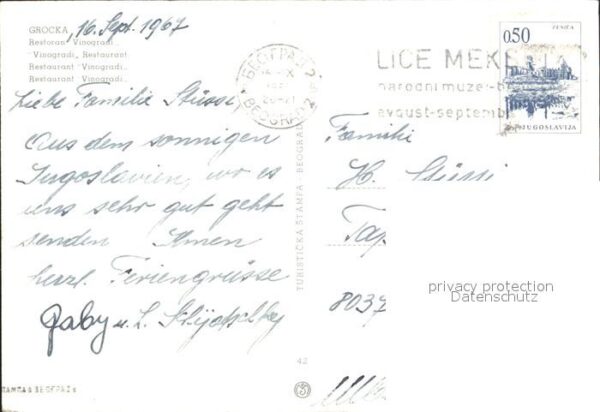 GROCKA, 16. Sept. 1967
Restoran "Vinogradi"
"Vinogradi" Restaurant
Restaurant "Vinogradi"
Restaurant "Vinogradi"
Liebe Familie Stüssi,
Aus dem sonnigen
Jugoslavien, wo es
uns sehr gut geht
senden Ihnen
herzl. Feriengrüsse
Gaby u. L.
БЕОГРАД 2
BEOGRAD 2
LICE MEKE
narodni muzej
avgust-septemb
0,50
ZENICA
JUGOSLAVIJA
Familie
H. Stüssi
Tap
8037
TURISTIČKA ŠTAMPA - BEOGRAD
privacy protection
Datenschutz
42